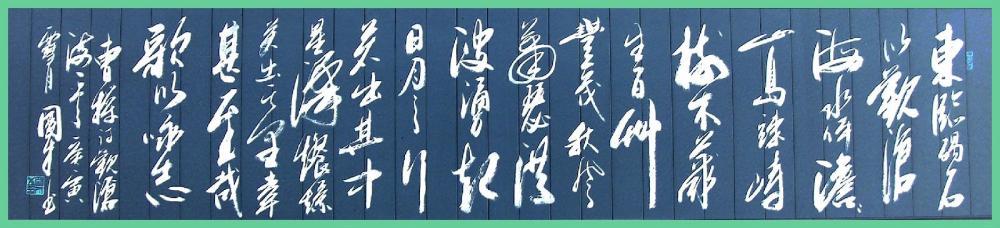 東臨碣石
以觀滄
海水何澹々
山島竦峙
樹木叢
生百艸
豐茂秋風
蕭瑟洪
波湧起
日月之行
若出其中
星漢燦爛
若出其里幸
甚至哉
歌以咏志
曹操詩觀滄
海于庚寅
雪月國才书